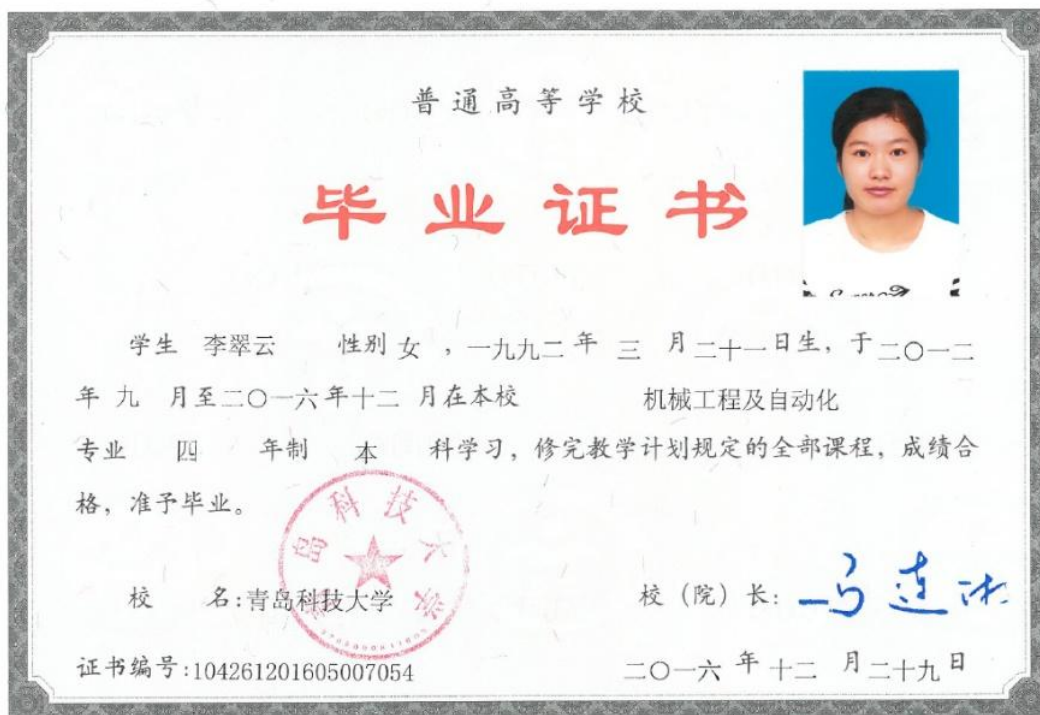 普通高等学校
毕业证书
学生 李翠云 性别 女 ，一九九二 年 三 月 二十一 日生，于 二〇一二
年 九 月至 二〇一六 年 十二 月在本校 机械工程及自动化
专业 四 年制 本 科学习，修完教学计划规定的全部课程，成绩合
格，准予毕业。
青岛科技大学
校 名:青岛科技大学 校（院）长: 马连湘
证书编号:104261201605007054 二〇一六 年 十二 月 二十九 日